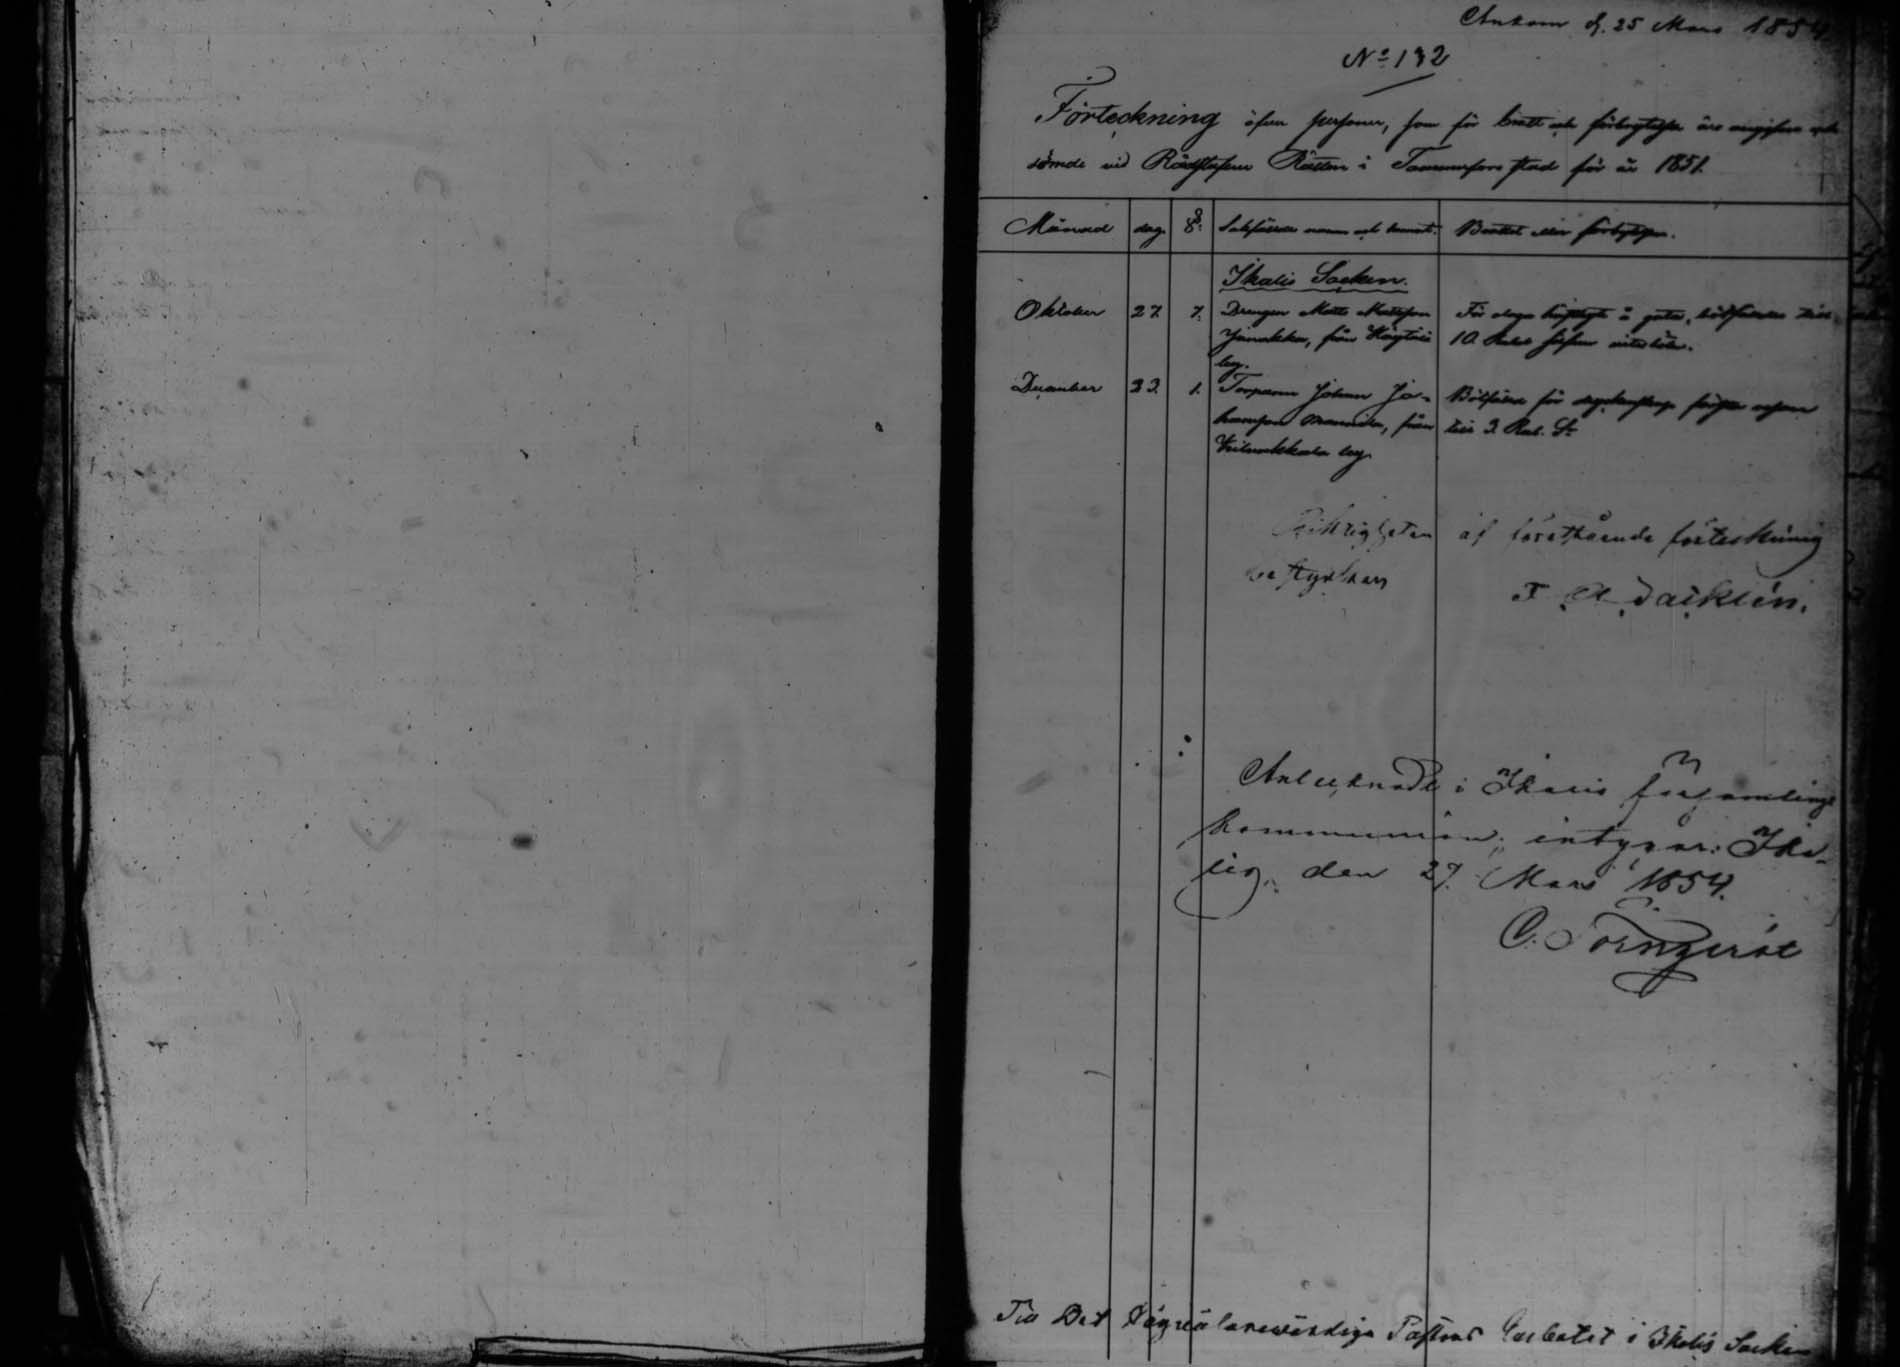 Ankom d. 25 Mars 1854
No 132
Förteckning öfver personer, som för brott och förbrytelser äro angifne och
dömde vid Rådstufvu Rätten i Tammerfors stad för år 1851.
Månad dag. § Sakfälldes namn och hemvist. Brottet eller förbrytelsen.
Ikalis Socken.
Oktober 27. 7. Drengen Matts Mattsson För å gata, bötfälldes till
från by. 10 Rubel silfver
December 23. 1. Torparen Johan Jo- Bötfälld för dryckenskap första resan
hansson från till 3 Rub. Sr
by.
Riktigheten af förestående förteckning
bestyrkes
F. A.
Antecknade i Ikalis församlings
kommunion, intygar: Ika-
lis, den 27. Mars 1854.
C. Törnqvist
Till Det Högvälärevördiga Pastors Embetet i Ikalis Socken